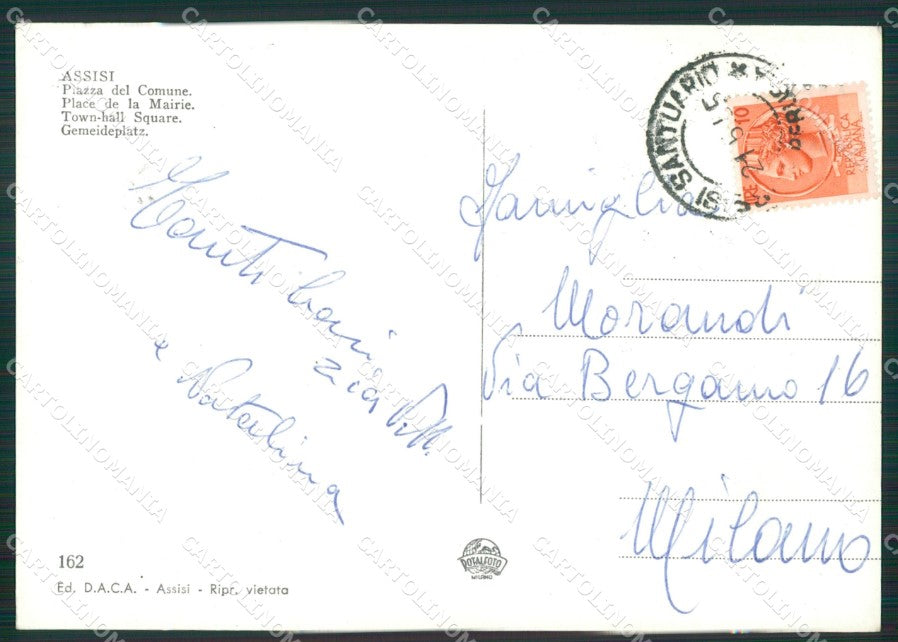 ASSISI
Piazza del Comune.
Place de la Mairie.
Town-hall Square.
Gemeideplatz.
Tanti baci
zia
e Natalina
162
Ed. D.A.C.A. - Assisi - Ripr. vietata
SANTUARIO
REPUBBLICA
ITALIANA
Famiglia
Morandi
Via Bergamo 16
Milano
ROTALFOTO
MILANO
CARTOLINOMANIA